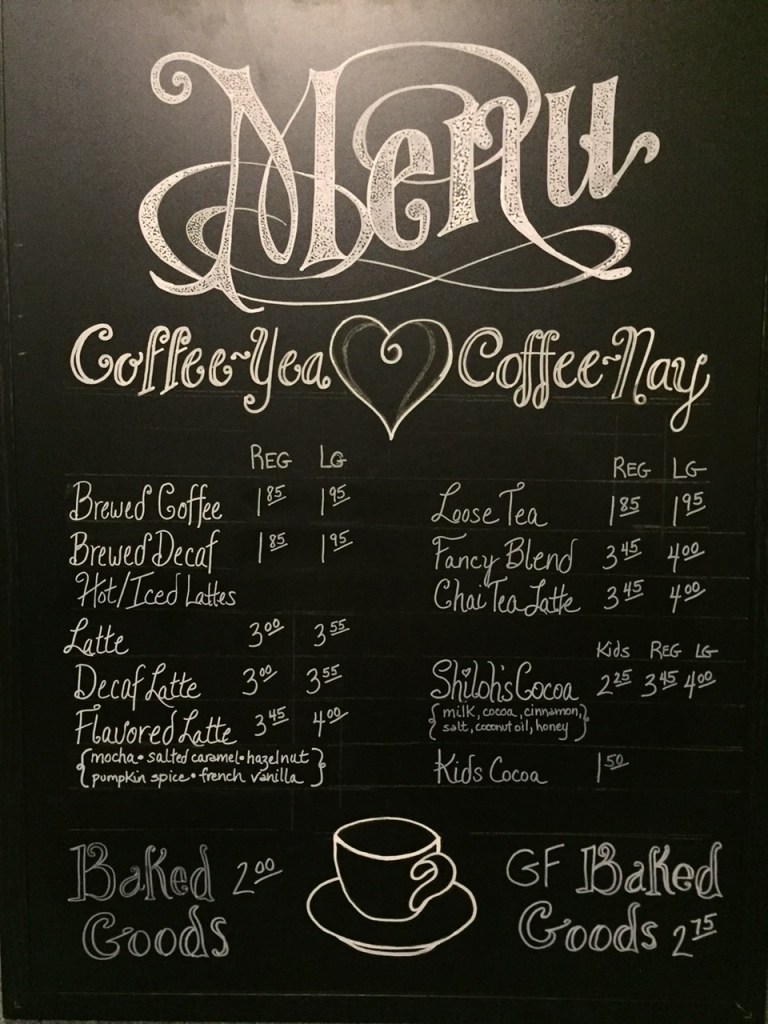 Menu
Coffee~Yea
REG LG
Brewed Coffee 1 85 1 95
Brewed Decaf 1 85 1 95
Hot/Iced Lattes
Latte 3 00 3 55
Decaf Latte 3 00 3 55
Flavored Latte 3 45 4 00
{mocha • salted caramel • hazelnut
pumpkin spice • french vanilla}
Coffee~Nay
REG LG
Loose Tea 1 85 1 95
Fancy Blend 3 45 4 00
Chai Tea Latte 3 45 4 00
Kids REG LG
Shiloh's Cocoa 2 25 3 45 4 00
{milk, cocoa, cinnamon,
salt, coconut oil, honey}
Kids Cocoa 1 50
Baked 2 00
Goods
GF Baked
Goods 2 75